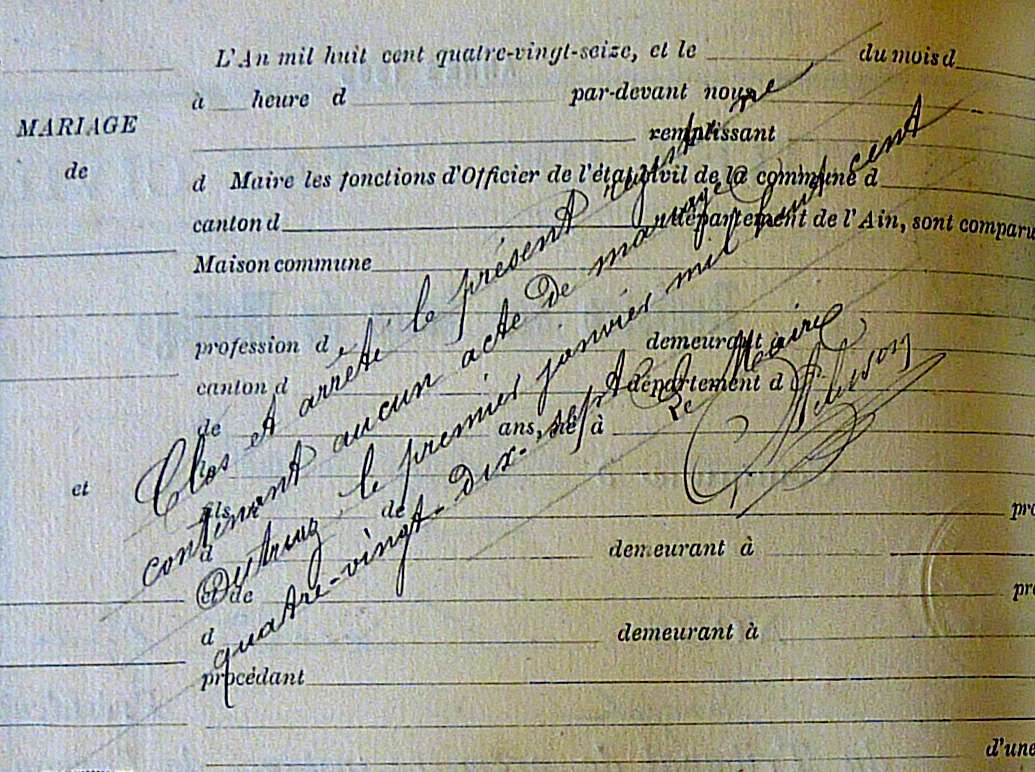 L'An mil huit cent quatre-vingt-seize, et le du mois d
à heure d par-devant nous
MARIAGE
remplissant
de
d Maire les fonctions d'Officier de l'état civil de la commune d
canton d département de l'Ain, sont comparu
Maison commune
profession d demeurant à
canton d département d
de ans, né à
et
fils de pro
d demeurant à
et de pro
d demeurant à
procédant
d'une
Clos et arrêté le présent registre
contenant aucun acte de mariage
Outriaz, le premier janvier mil huit cent
quatre-vingt-dix-sept
Le Maire